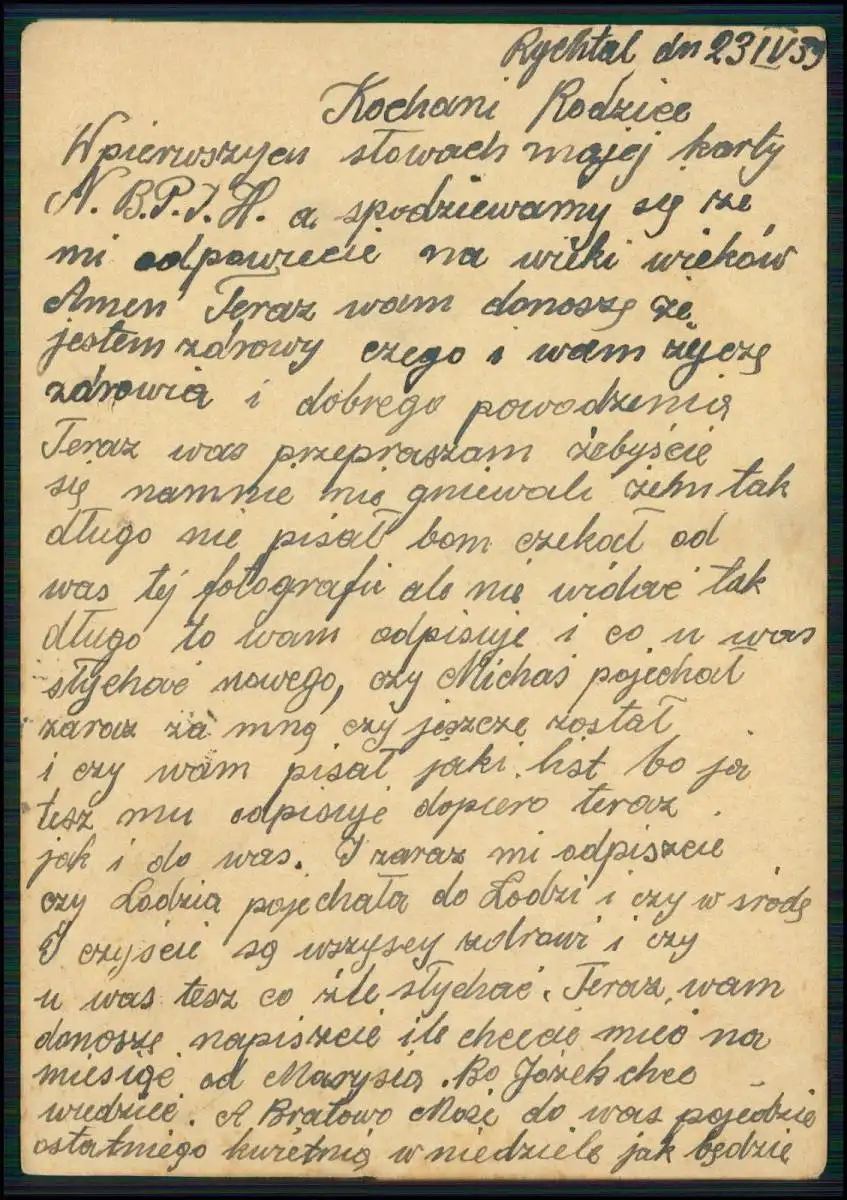 Rychtal dn 23 IV 39
Kochani Rodzice
Wpierwszych słowach mojej karty
N. B. P. J. H. a spodziewamy się że
mi odpowiecie na wieki wieków
Amen Teraz wam donoszę że
jestem zdrowy czego i wam życzę
zdrowia i dobrego powodzenia
Teraz was przepraszam żebyście
się namnie nie gniewali żem tak
długo nie pisał bom czekał od
was tej fotografii ale nie widać tak
długo to wam odpisuje i co u was
słychać nowego, czy Michaś pojechał
zaraz za mną czy jeszcze został
i czy wam pisał jaki list bo ja
tesz mu odpisuje dopiero teraz
jak i do was. I zaraz mi odpiszcie
czy Lodzia pojechała do Lodzi i czy w środę
I czyście są wszyscy zdrowi i czy
u was tesz co źle słychać. Teraz wam
donoszę napiszcie ile chcecie mieć na
miesiąc od Marysią. Bo Józek chce
wiedzieć. A Bratowo Może do was pojedzie
ostatniego kwietnia w niedziele jak będzie